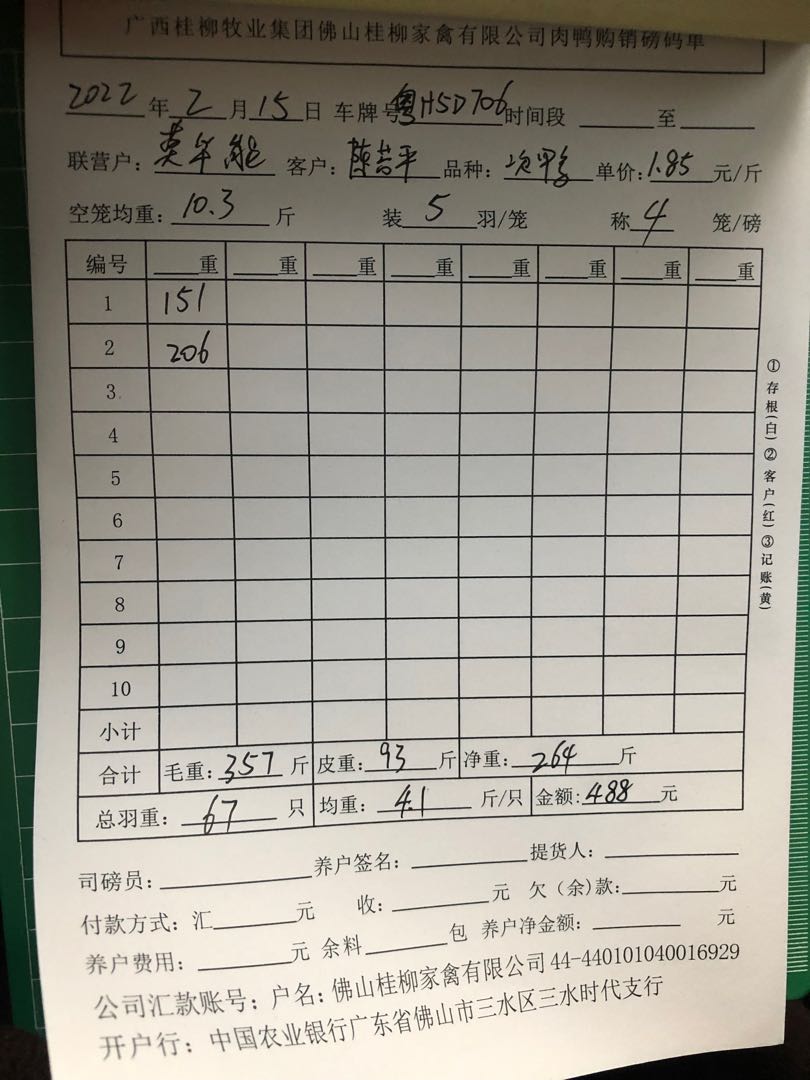 广西桂柳牧业集团佛山桂柳家禽有限公司肉鸭购销磅码单
2022年2月15日 车牌号粤H5D706时间段 至
联营户： 客户：陈吉平 品种：次鸭 单价:1.85元/斤
空笼均重：10.3斤 装5羽/笼 称4笼/磅
编号 重 重 重 重 重 重 重 重
1 151
2 206
3
4
5
6
7
8
9
10
小计
合计 毛重:357斤 皮重:93斤 净重:264斤
总羽重：67只 均重：4.1斤/只 金额:488元
司磅员： 养户签名： 提货人：
付款方式：汇 元 收： 元 欠（余)款: 元
养户费用： 元 余料 包 养户净金额： 元
公司汇款账号：户名：佛山桂柳家禽有限公司44-440101040016929
开户行：中国农业银行广东省佛山市三水区三水时代支行
①存根(白)②客户(红)③记账(黄)